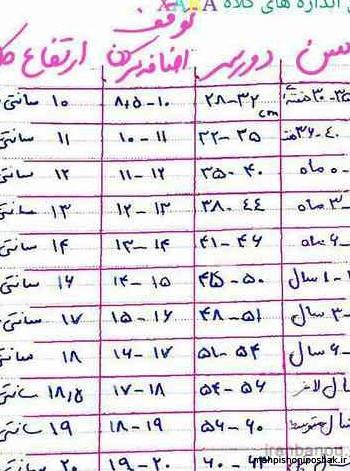 اندازه های کلاه
توقف
سن دور سر اضافه کردن ارتفاع
۲۸-۳۲ cm ۸,۵-۱۰ ۱۰ سانتی
۳۶-۴۰ ۳۲-۳۵ ۱۰-۱۱ ۱۱ سانتی
ماه ۳۵-۴۰ ۱۱-۱۲ ۱۲ سانتی
۳ ماه ۳۸-۴۴ ۱۲-۱۳ ۱۳ سانتی
۶ ماه ۴۱-۴۶ ۱۳-۱۴ ۱۴ سانتی
۱ سال ۴۵-۵۰ ۱۴-۱۵ ۱۶ سانتی
۳ سال ۴۸-۵۱ ۱۵-۱۶ ۱۷ سانتی
۶ سال ۵۱-۵۴ ۱۶-۱۷ ۱۸ سانتی
سال ۵۴-۵۶ ۱۷-۱۸ ۱۸,۵ سانتی
متوسط ۵۶-۶۰ ۱۸-۱۹ ۱۹ سانتی
۶۰ ۱۹-۲۰ ۲۰ سانتی
iranbanou
mahpishoniposhak.ir